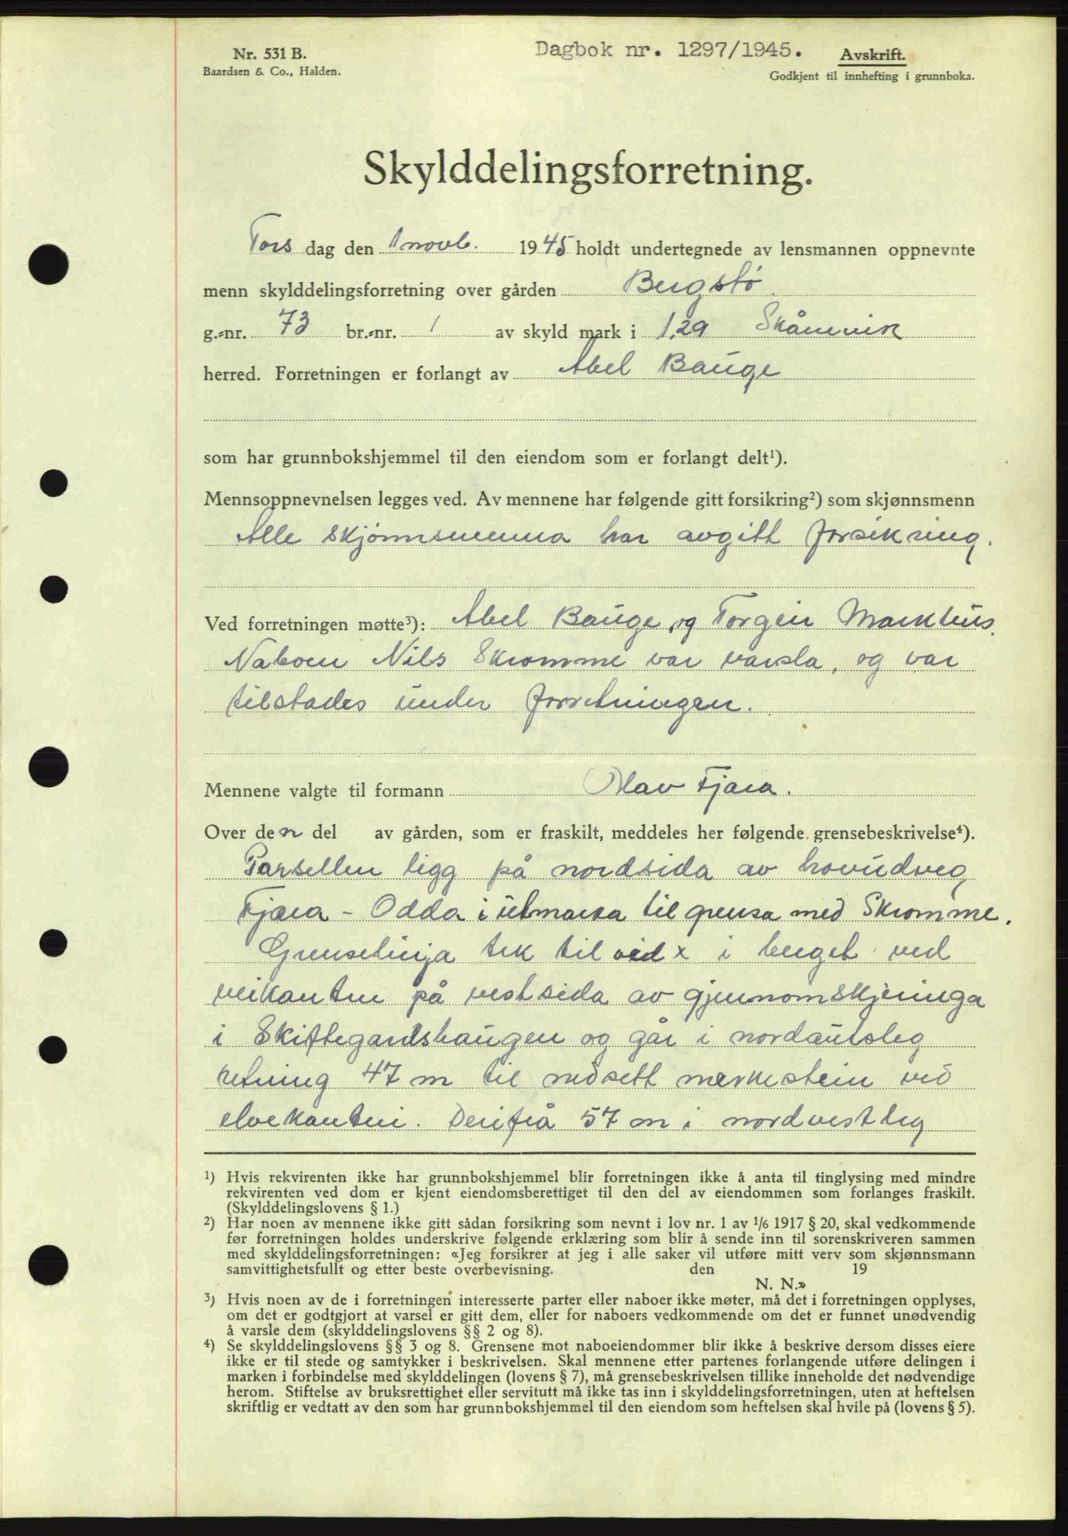 Nr. 531 B.
Baardsen & Co., Halden.
Dagbok nr. 1297/1945.
Avskrift.
Godkjent til innhefting i grunnboka.
Skylddelingsforretning.
Tors dag den 1 novb. 1945 holdt undertegnede av lensmannen oppnevnte
menn skylddelingsforretning over gården Bergstø
g.-nr. 73 br.-nr. 1 av skyld mark i 1,29 Skånevik
herred. Forretningen er forlangt av Abel Bauge
som har grunnbokshjemmel til den eiendom som er forlangt delt¹).
Mennsoppnevnelsen legges ved. Av mennene har følgende gitt forsikring²) som skjønnsmenn
Alle skjønnsmenna har avgitt forsikring.
Ved forretningen møtte³): Abel Bauge, og Torgeir Markhus.
Naboen Nils Skromme var varsla, og var
tilstades under forretningen.
Mennene valgte til formann Olav Fjæra.
Over den del av gården, som er fraskilt, meddeles her følgende grensebeskrivelse⁴).
Parsellen ligg på nordsida av hovudveg
Fjæra - Odda i utmarka til grensa med Skromme.
Grenselinja tek til ved x i berget ved
veikanten på vestsida av gjennomskjeringa
i Skiftegardshaugen og går i nordaustleg
retning 47 m til nedsett merkestein ved
elvekanten. Derifrå 57 m i nordvestleg
¹) Hvis rekvirenten ikke har grunnbokshjemmel blir forretningen ikke å anta til tinglysing med mindre
rekvirenten ved dom er kjent eiendomsberettiget til den del av eiendommen som forlanges fraskilt.
(Skylddelingslovens § 1.)
²) Har noen av mennene ikke gitt sådan forsikring som nevnt i lov nr. 1 av 1/6 1917 § 20, skal vedkommende
før forretningen holdes underskrive følgende erklæring som blir å sende inn til sorenskriveren sammen
med skylddelingsforretningen: «Jeg forsikrer at jeg i alle saker vil utføre mitt verv som skjønnsmann
samvittighetsfullt og etter beste overbevisning. den 19
N. N.»
³) Hvis noen av de i forretningen interesserte parter eller naboer ikke møter, må det i forretningen opplyses,
om det er godtgjort at varsel er gitt dem, eller for naboers vedkommende om det er funnet unødvendig
å varsle dem (skylddelingslovens §§ 2 og 8).
⁴) Se skylddelingslovens §§ 3 og 8. Grensene mot naboeiendommer blir ikke å beskrive dersom disses eiere
ikke er til stede og samtykker i beskrivelsen. Skal mennene etter partenes forlangende utføre delingen i
marken i forbindelse med skylddelingen (lovens § 7), må grensebeskrivelsen tillike inneholde det nødvendige
herom. Stiftelse av bruksrettighet eller servitutt må ikke tas inn i skylddelingsforretningen, uten at heftelsen
skriftlig er vedtatt av den som har grunnbokshjemmel til den eiendom som heftelsen skal hvile på (lovens § 5).